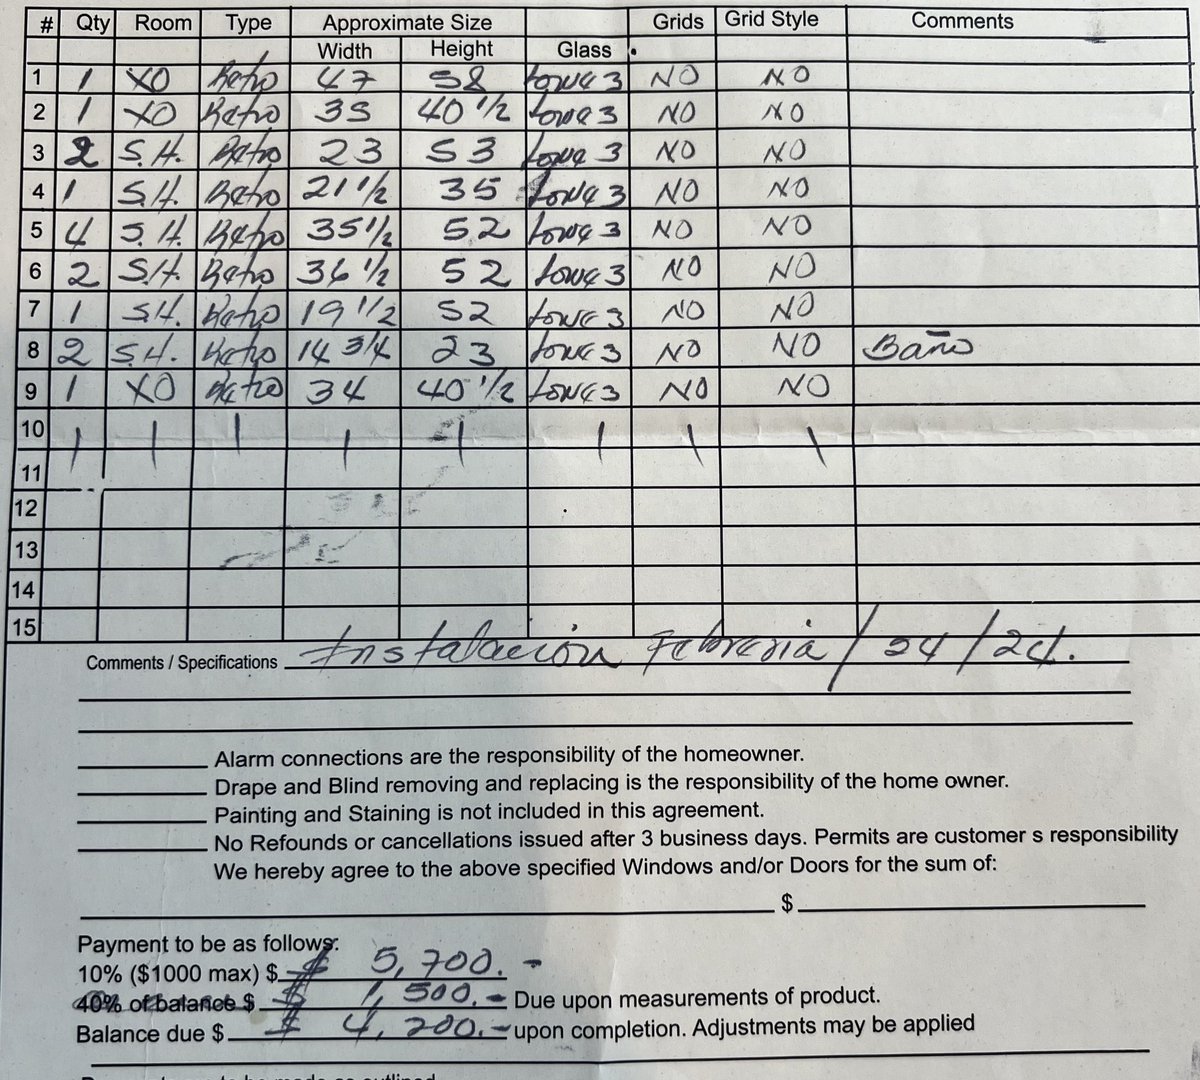 # Qty Room Type Approximate Size Grids Grid Style Comments
Width Height Glass
1 1 XO Retro 47 58 Lowe 3 NO NO
2 1 XO Retro 35 40 1/2 Lowe 3 NO NO
3 2 S.H. Retro 23 53 Lowe 3 NO NO
4 1 S.H. Retro 21 1/2 35 Lowe 3 NO NO
5 4 S.H. Retro 35 1/2 52 Lowe 3 NO NO
6 2 S.H. Retro 36 1/2 52 Lowe 3 NO NO
7 1 S.H. Retro 19 1/2 52 Lowe 3 NO NO
8 2 S.H. Retro 14 3/4 23 Lowe 3 NO NO Baño
9 1 XO Retro 34 40 1/2 Lowe 3 NO NO
10
11
12
13
14
15
Comments / Specifications Instalacion / 24 / 24.
Alarm connections are the responsibility of the homeowner.
Drape and Blind removing and replacing is the responsibility of the home owner.
Painting and Staining is not included in this agreement.
No Refunds or cancellations issued after 3 business days. Permits are customer s responsibility
We hereby agree to the above specified Windows and/or Doors for the sum of:
$
Payment to be as follows:
10% ($1000 max) $ $ 5,700.-
40% of balance $ $ 1,500.- Due upon measurements of product.
Balance due $ $ 4,200.- upon completion. Adjustments may be applied